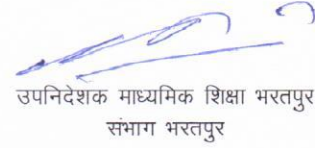 उपनिदेशक माध्यमिक शिक्षा भरतपुर
संभाग भरतपुर